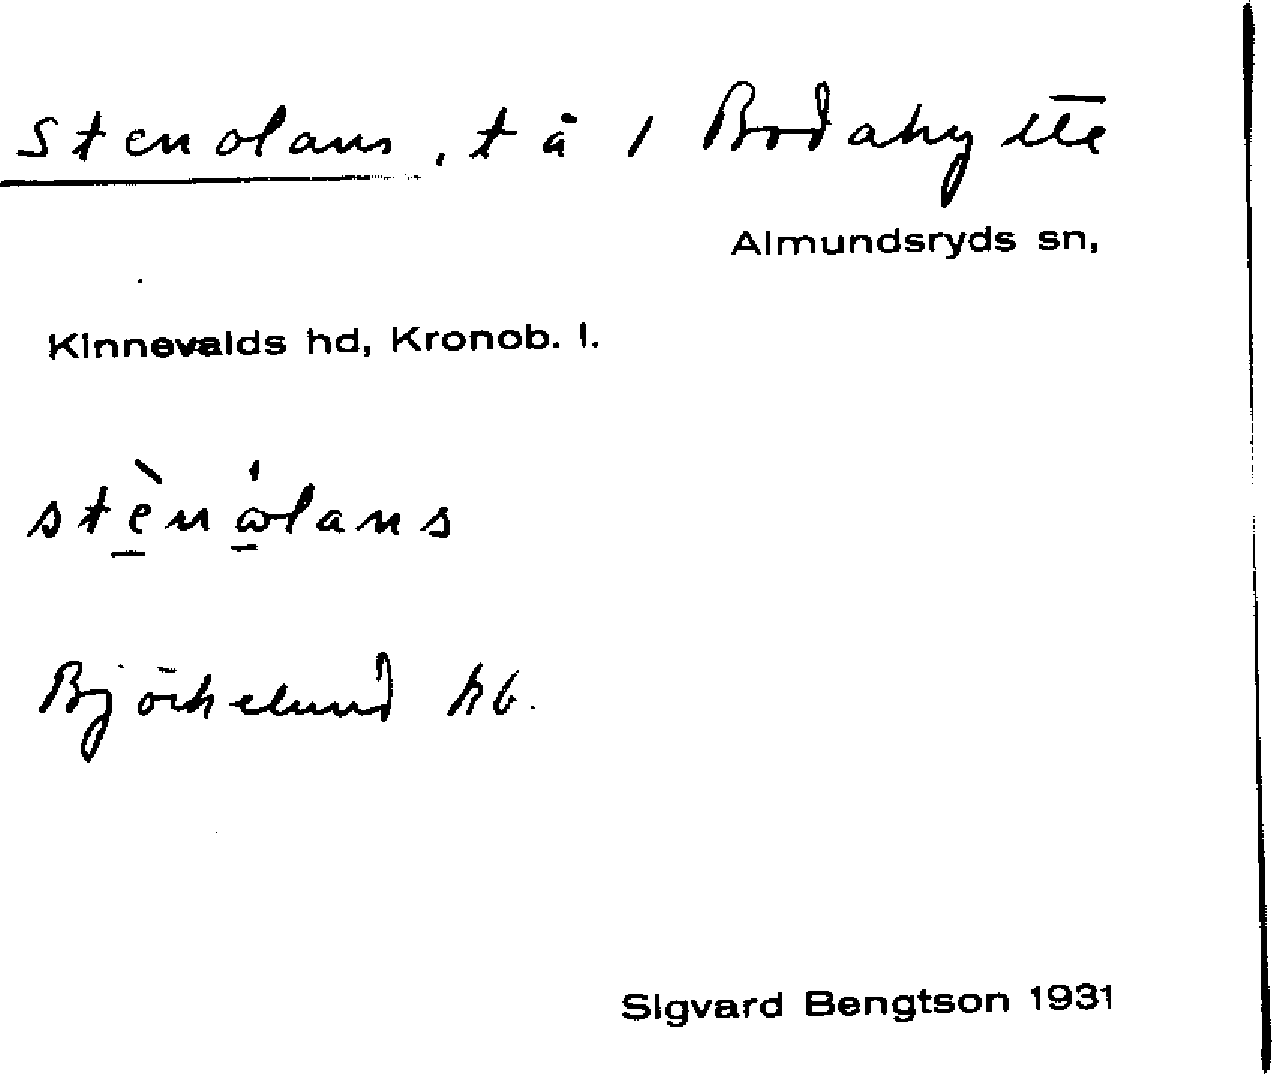 Stenolans, tä 1 Bodahytte
Almundsryds sn,
Kinnevalds hd, Kronob. l.
stènω̇lans
Björkelund hb.
Sigvard Bengtson 1931